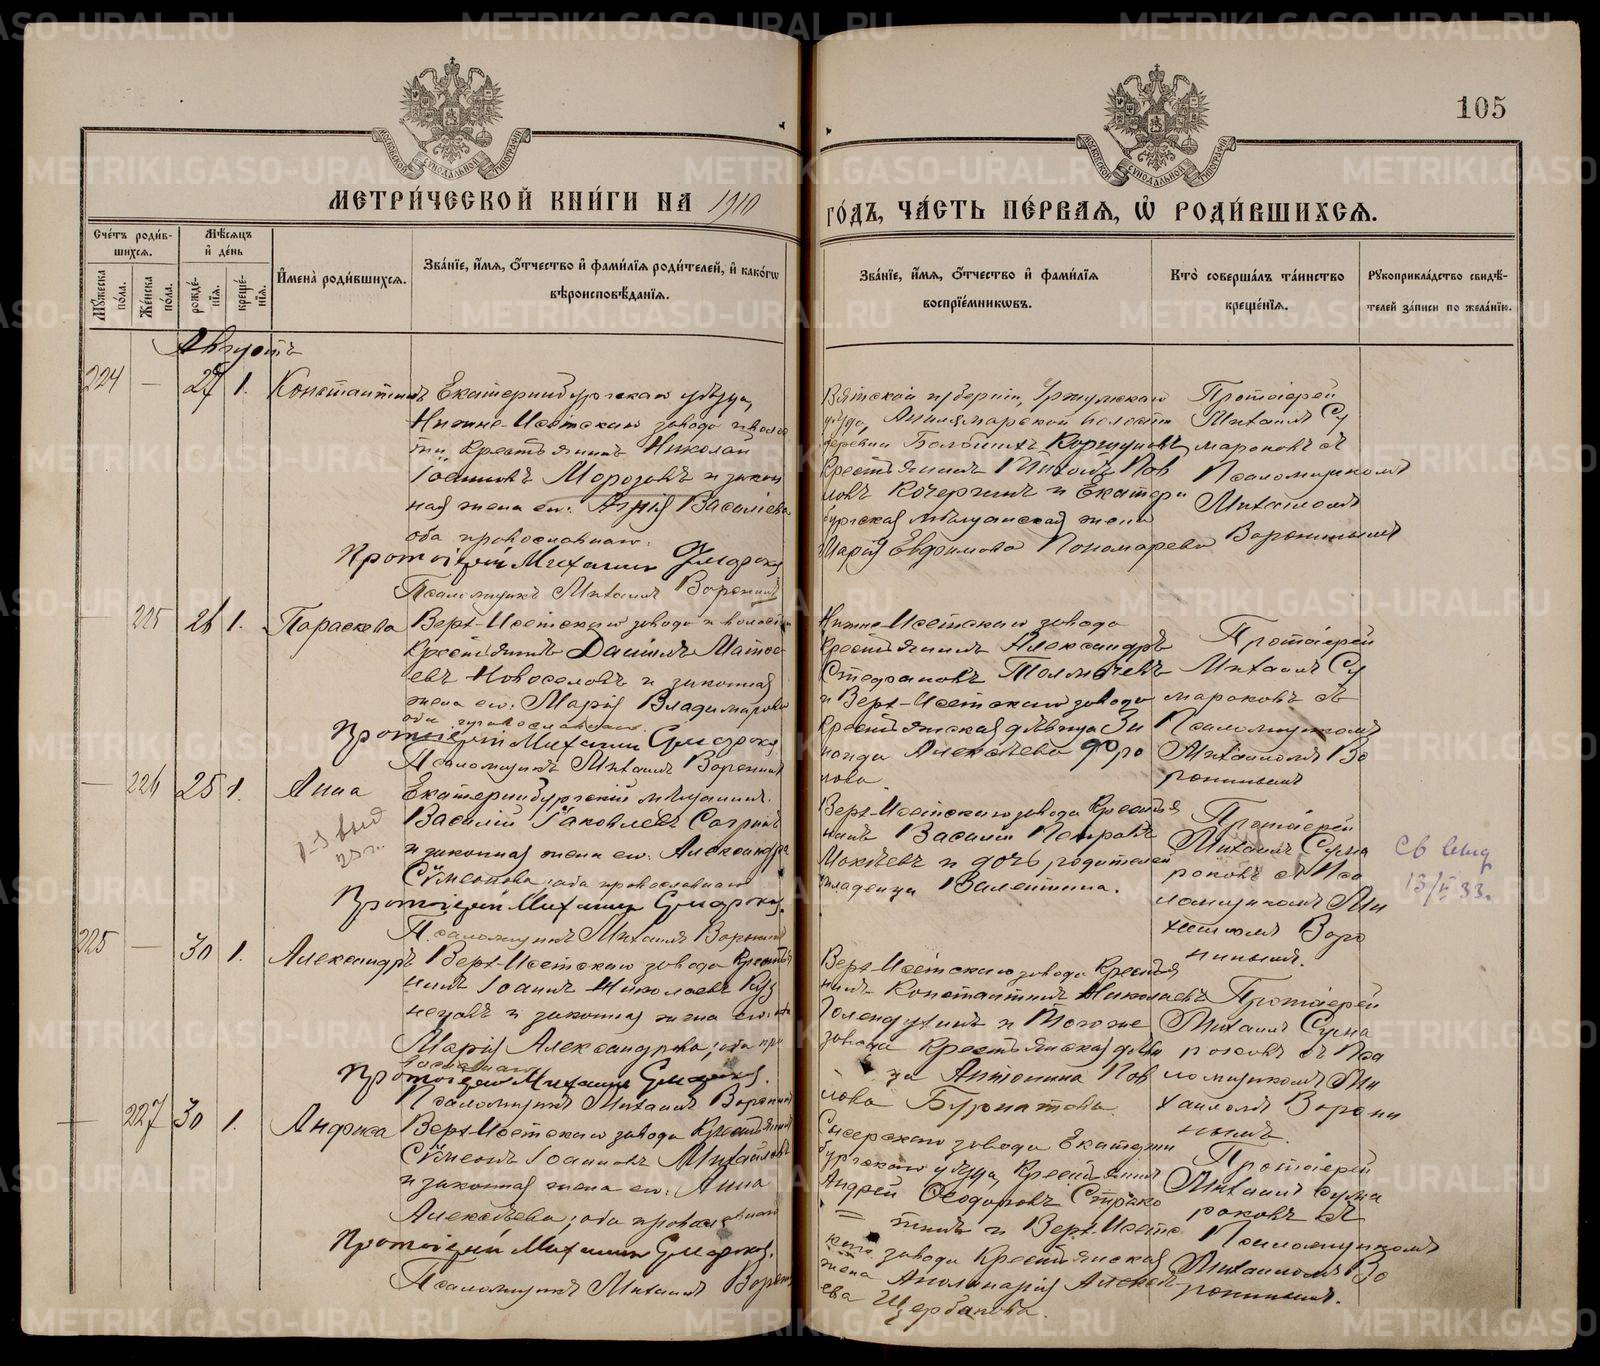 105
МЕТРИ́ЧЕСКОЙ КНИ́ГИ НА 1910
ГО́ДЪ, ЧА́СТЬ ПЕ́РВАЯ, Ѡ҆ РОДИ́ВШИХСЯ.
Сче́тъ роди́в-
шихся.
Мѣ́сяцъ
и҆ де́нь
Му́жеска по́ла.
Же́нска по́ла.
рожде́нїя.
креще́нїя.
И҆мена̀ роди́вшихся.
Зва́нїе, и҆́мя, ѻ҆́тчество и҆ фами́лїя роди́телей, и҆ како́гѡ
вѣроисповѣ́данїя.
Зва́нїе, и҆́мя, ѻ҆́тчество и҆ фами́лїя
воспрїе́мниковъ.
Кто̀ соверша́лъ та́инство
креще́нїя.
Рꙋкоприкла́дство свидѣ́-
телей за́писи по жела́нїю.
Августъ
224 — 27 1. Константинъ
Екатеринбургскаго уѣзда,
Нижне-Исетскаго завода и волос
ти, крестьянинъ Николай
Іоанновъ Морозовъ и закон
ная жена его: Агнія Васильева
оба православнаго.
Протоіерей Михаилъ Сумароковъ
Псаломщикъ Михаилъ Воронинъ
Вятской губерніи, Уржумскаго
уѣзда, волости
деревни
крестьянинъ Пав
ловъ Кочергинъ и Екатерин
бургская мѣщанская жена
Марія Евфимова Пономарева
Протоіерей
Михаилъ Су
мароковъ съ
Псаломщикомъ
Михаиломъ
Воронинымъ
— 225 26 1. Параскева
Верх-Исетскаго завода и волости
крестьянинъ Даніилъ Матѳе
евъ Новоселовъ и законная
жена его: Марія Владимірова
оба православнаго
Протоіерей Михаилъ Сумароковъ
Псаломщикъ Михаилъ Воронинъ
Нижне-Исетскаго завода
крестьянинъ Александръ
Стефановъ Толмачевъ
и Верх-Исетскаго завода
крестьянская дѣвица Зи
наида Алексѣева Фро
лова
Протоіерей
Михаилъ Су
мароковъ съ
Псаломщикомъ
Михаиломъ Во
ронинымъ
— 226 25 1. Анна
Екатеринбургскій мѣщанинъ
Василій Іаковлевъ
и законная жена его: Александра
Сѷмеонова, оба православнаго
Протоіерей Михаилъ Сумароковъ.
Псаломщикъ Михаилъ Воронинъ
Верх-Исетскаго завода крестья
нинъ Василій Петровъ
Мокѣевъ и дочь родителей
младенца Валентина.
Протоіерей
Михаилъ Сума
роковъ съ Пса
ломщикомъ Ми
хаиломъ Воро
нинымъ.
225 — 30 1. Александръ
Верх-Исетскаго завода крестья
нинъ Іоаннъ Николаевъ Куз
нецовъ и законная жена его:
Марія Александрова, оба пра
вославнаго
Протоіерей Михаилъ Сумароковъ.
Псаломщикъ Михаилъ Воронинъ
Верх-Исетскаго завода крестья
нинъ Константинъ Николаевъ
Голендухинъ и тогоже
завода крестьянская дѣви
ца Антонина Пав
лова Бурматова.
Протоіерей
Михаилъ Сума
роковъ съ Пса
ломщикомъ Ми
хаиломъ Ворони
нымъ.
— 227 30 1. Анфиса
Верх-Исетскаго завода крестьянинъ
Сѷмеонъ Іоанновъ Михайловъ
и законная жена его: Анна
Алексѣева, оба православнаго
Протоіерей Михаилъ Сумароковъ.
Псаломщикъ Михаилъ Воронинъ
Сысертскаго завода Екатерин
бургскаго уѣзда, крестьянинъ
Андрей Ѳеодоровъ
и Верх-Исетс
каго завода крестьянская
жена Аполинарія Алексѣ
ева Щербакова.
Протоіерей
Михаилъ Сума
роковъ съ
Псаломщикомъ
Михаиломъ Во
ронинымъ.
METRIKI.GASO-URAL.RU